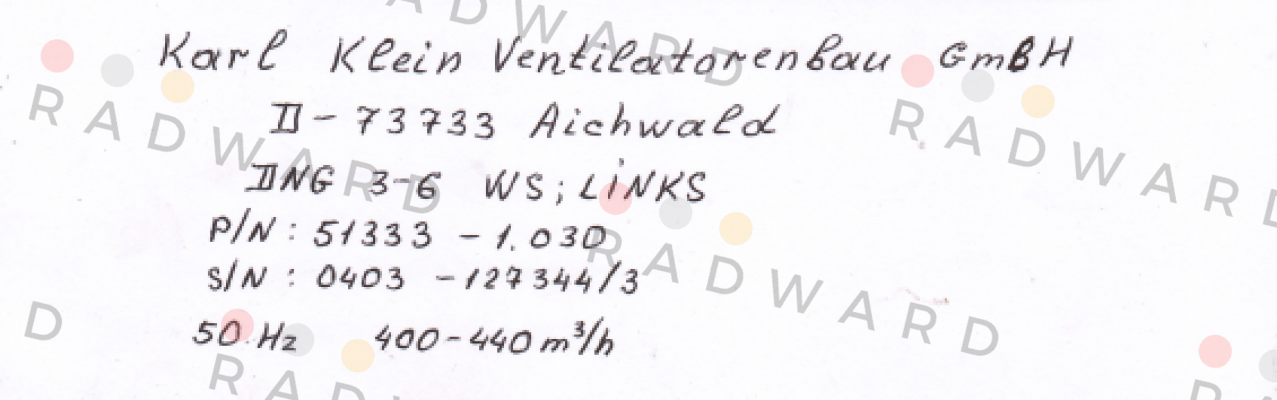 Karl Klein Ventilatorenbau GmBH
D-73733 Aichwald
DNG 3-6 WS; LiNKS
P/N: 51333 - 1.030
S/N: 0403 - 127344/3
50 Hz 400-440 m³/h
RADWARD
RADWARD
RADWARD
RADWARD
D
RAD
R